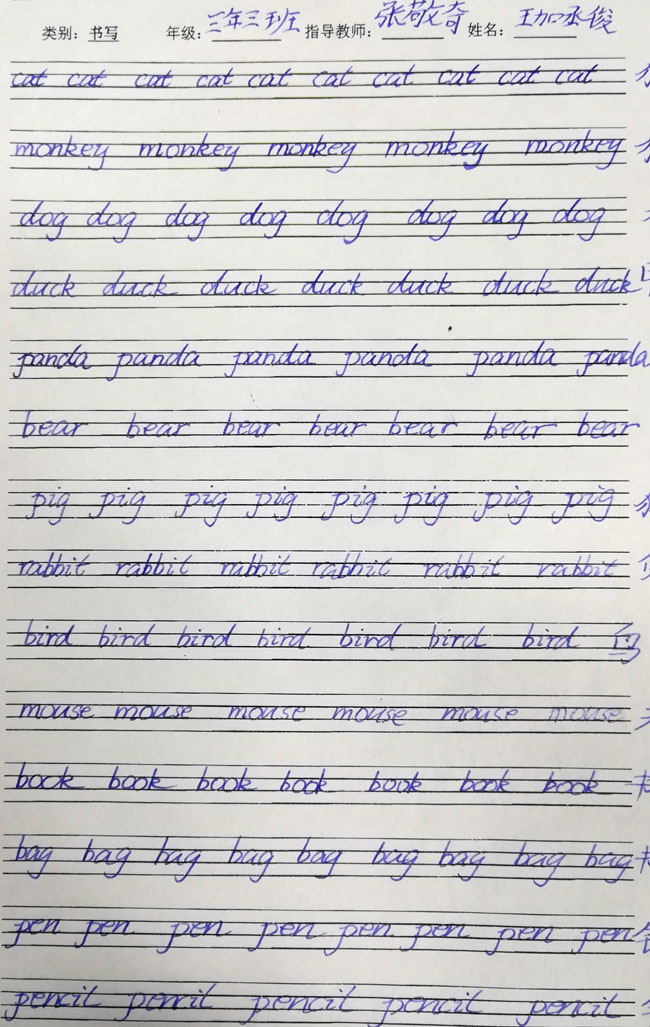 类别：书写 年级：三年三班 指导教师：张敬奇 姓名：王加丞俊
cat cat cat cat cat cat cat cat cat cat
monkey monkey monkey monkey monkey
dog dog dog dog dog dog dog dog
duck duck duck duck duck duck duck
panda panda panda panda panda panda
bear bear bear bear bear bear bear
pig pig pig pig pig pig pig pig
rabbit rabbit rabbit rabbit rabbit rabbit
bird bird bird bird bird bird bird 鸟
mouse mouse mouse mouse mouse mouse
book book book book book book book
bag bag bag bag bag bag bag bag bag
pen pen pen pen pen pen pen pen
pencil pencil pencil pencil pencil